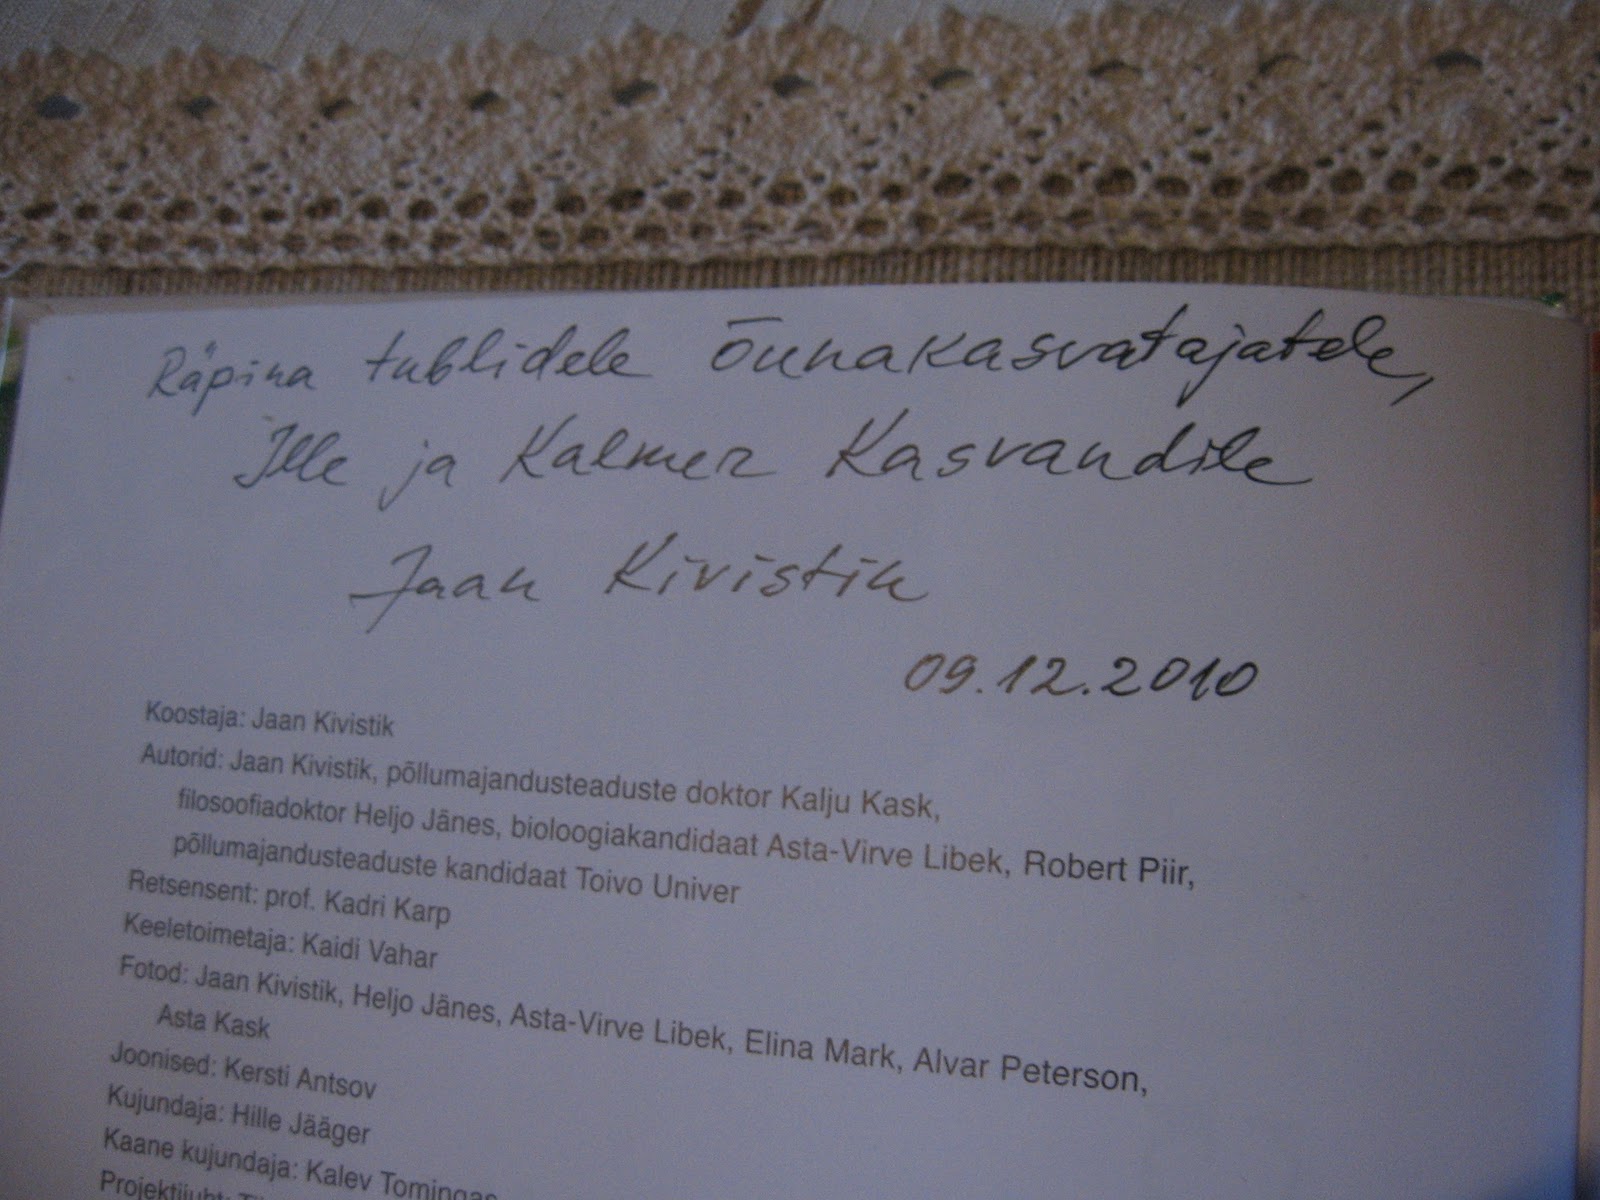 Räpina tublidele õunakasvatajatele,
Ille ja Kalmer Kasvandile
Jaan Kivistik
09.12.2010
Koostaja: Jaan Kivistik
Autorid: Jaan Kivistik, põllumajandusteaduste doktor Kalju Kask,
filosoofiadoktor Heljo Jänes, bioloogiakandidaat Asta-Virve Libek, Robert Piir,
põllumajandusteaduste kandidaat Toivo Univer
Retsensent: prof. Kadri Karp
Keeletoimetaja: Kaidi Vahar
Fotod: Jaan Kivistik, Heljo Jänes, Asta-Virve Libek, Elina Mark, Alvar Peterson,
Asta Kask
Joonised: Kersti Antsov
Kujundaja: Hille Jääger
Kaane kujundaja: Kalev Tomingas
Projektijuht: